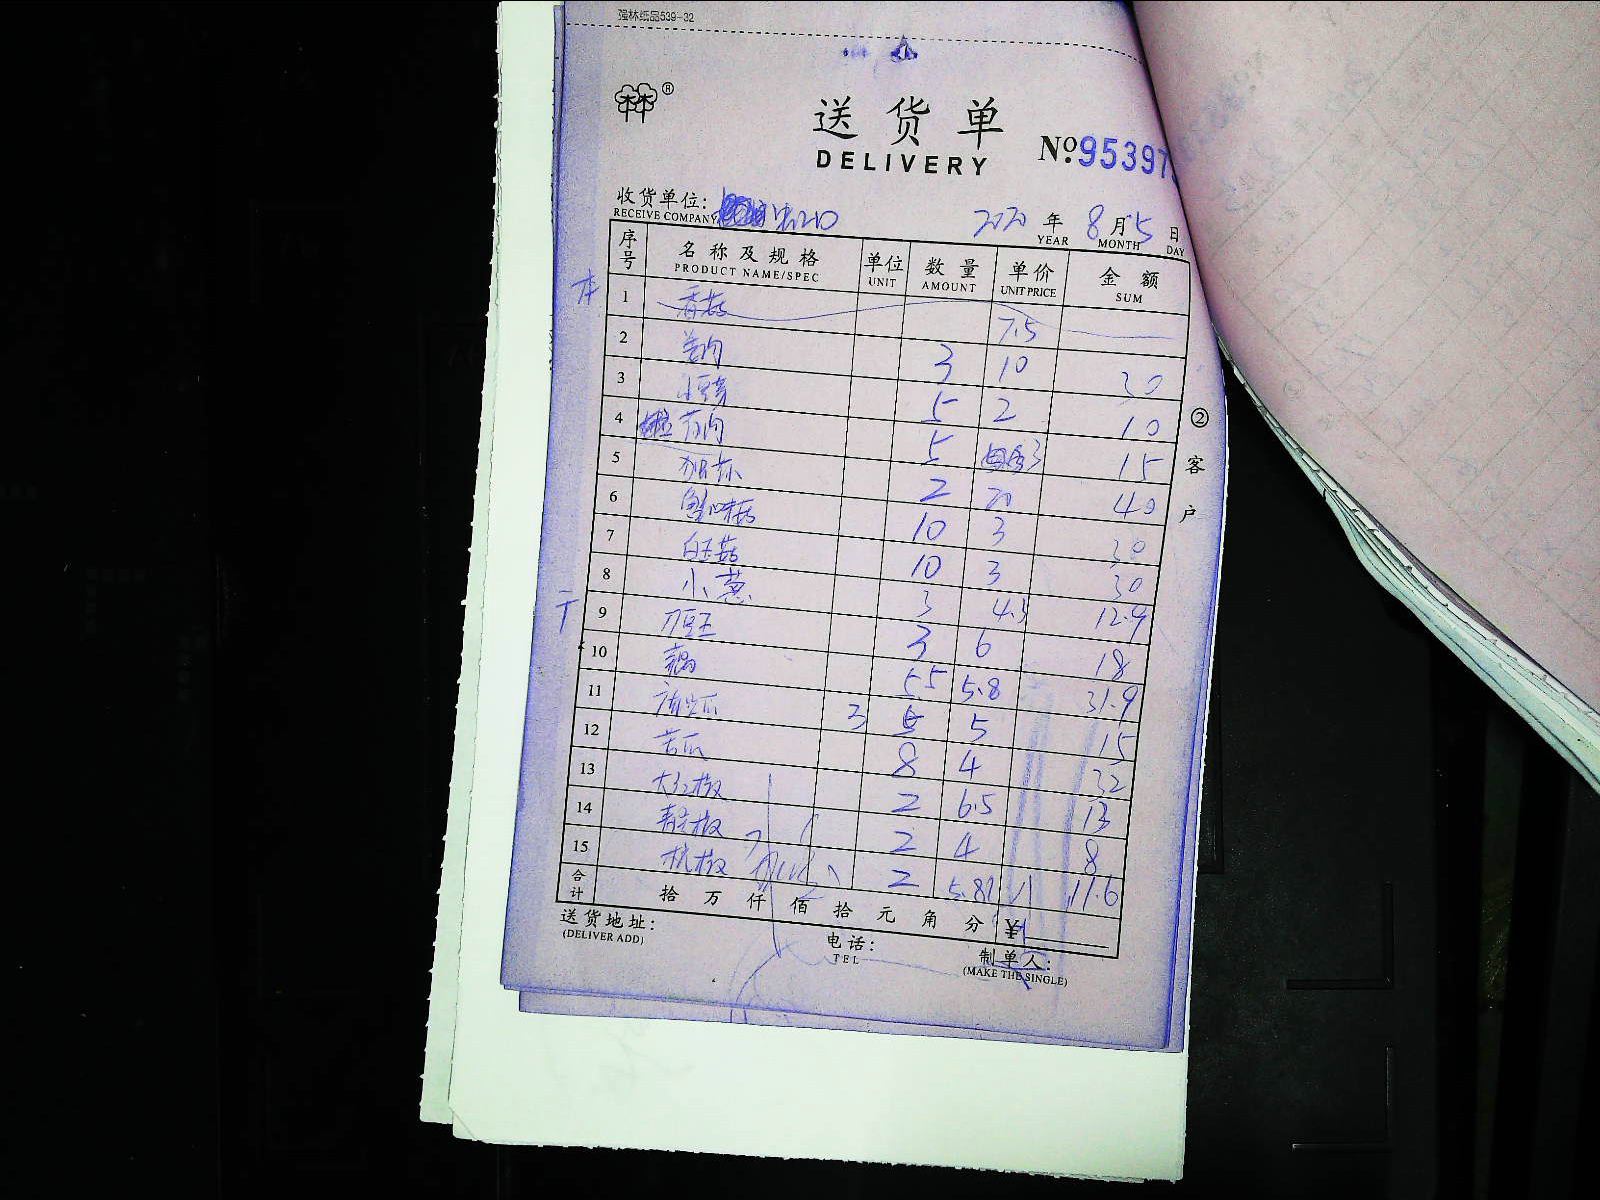 强林纸品539-32
林林®
送货单
DELIVERY
№ 95397
收货单位:
RECEIVE COMPANY
2020 年 8 月 5 日
YEAR MONTH DAY
序号 名称及规格 单位 数量 单价 金额
PRODUCT NAME/SPEC UNIT AMOUNT UNIT PRICE SUM
1 香菇 7.5
2 姜肉 3 10 30
3 小豆芽 5 2 10
4 5 3 15
5 2 20 40
6 蟹味菇 10 3 30
7 白玉菇 10 3 30
8 小葱 3 4.3 12.9
9 刀豆 3 6 18
10 藕 5.5 5.8 31.9
11 3 5 15
12 苦瓜 8 4 32
13 大红椒 2 6.5 13
14 青尖椒 2 4 8
15 杭椒 2 5.8 11.6
合计 拾 万 仟 佰 拾 元 角 分 ¥
送货地址:
(DELIVER ADD)
电话:
TEL
制单人:
(MAKE THE SINGLE)
② 客户